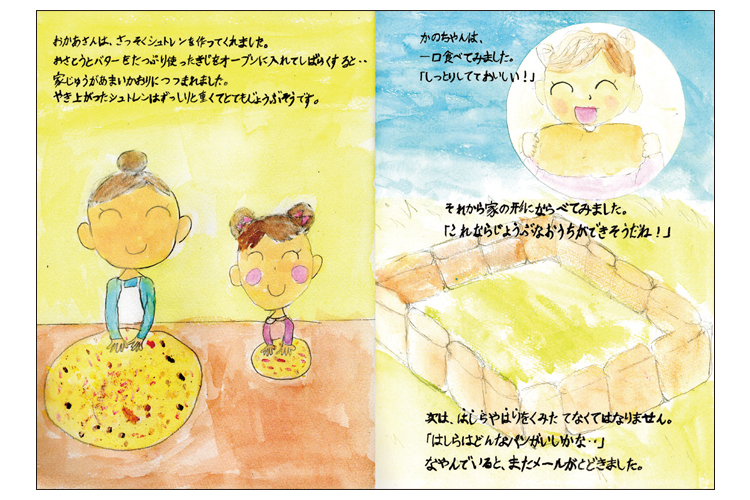 おかあさんは、さっそくシュトレンを作ってくれました。
おさとうとバターをたっぷり使ったきじをオーブンに入れてしばらくすると‥
家じゅうがあまいかおりにつつまれました。
やき上がったシュトレンはずっしりと重くてとてもじょうぶそうです。
かのちゃんは、
一口食べてみました。
「しっとりしてておいしい！」
それから家の形にならべてみました。
「これならじょうぶなおうちができそうだね！」
次は、はしらやはりをくみたてなくてはなりません。
「はしらはどんなパンがいいかな‥」
なやんでいると、またメールがとどきました。